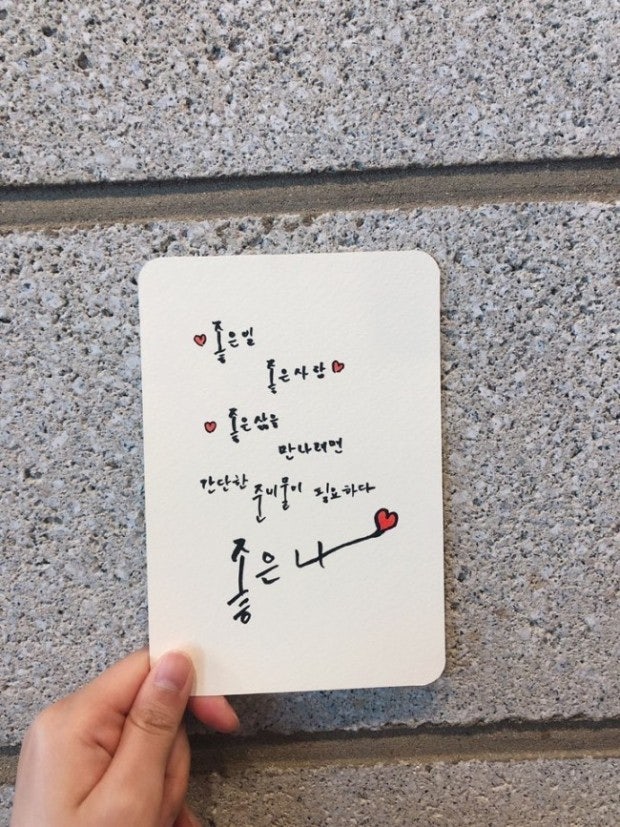 좋은일
좋은사람
좋은삶을
만나려면
간단한 준비물이 필요하다
좋은 나